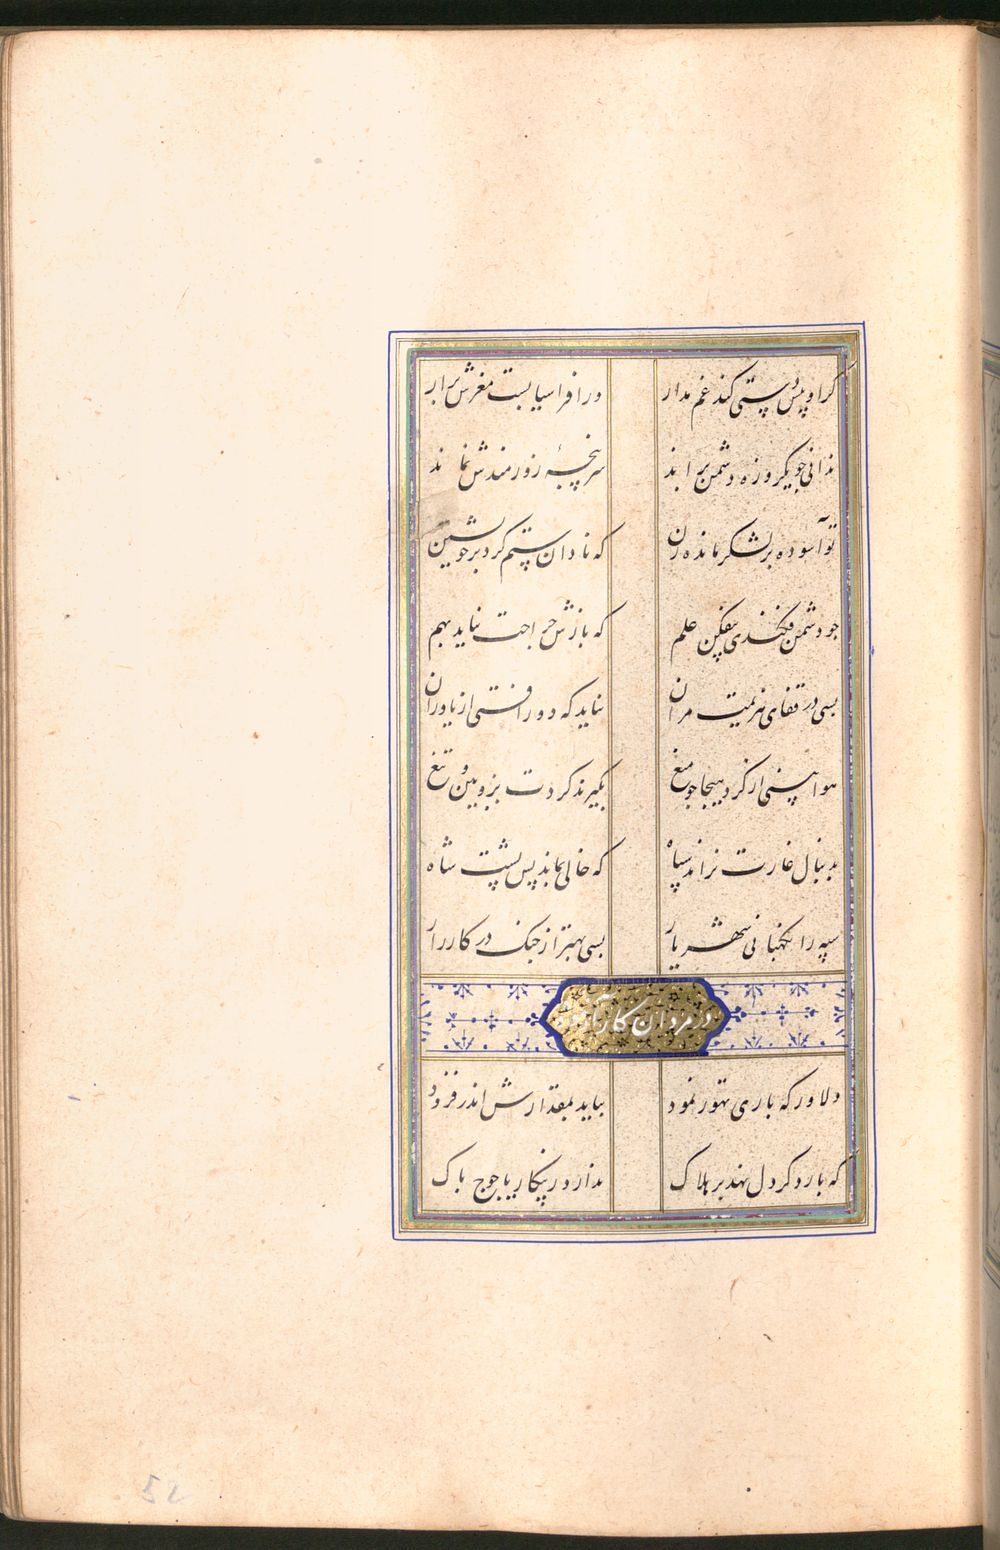 گر او پیش دستی کند غم مدار
ور افراسیابست مغزش برار
ندانی جو یکروزه دشمن براند
سر پنجهٔ زورمندش نماند
تو آسوده بر لشکر مانده زن
که نادان ستم کرد بر خویشتن
جو دشمن فکندی بیفکن علم
که بازش جراحت نیاید بهم
بسی در قفای هزیمت مران
نباید که دور افتی از یاوران
هوا بینی از گرد هیجا جو میغ
بگیرند گردت بزوبین و تیغ
بدنبال غارت نراند سپاه
که خالی بماند پس پشت شاه
سپه را نکهبانی شهریار
بسی بهتر از جنک در کارزار
در مردان کار
دلاور که باری تهور نمود
بباید بمقدارش اندر فزود
که بار دکر دل نهد بر هلاک
ندارد ز پیکار یاجوج باک
52